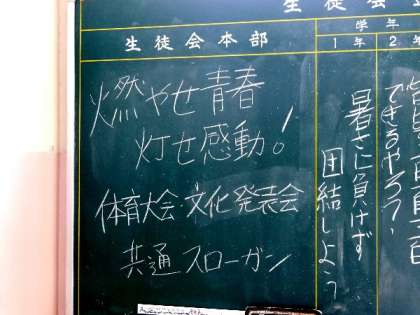 生徒会
生徒会本部
学年
1年
2年
燃やせ青春
灯せ感動！
体育大会・文化発表会
共通スローガン
暑さに負けず
団結しよう
できるやろう，